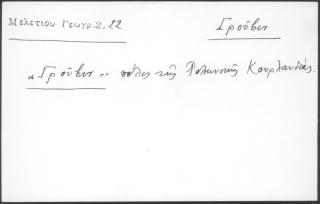 Μελετίου Γεωγρ. 2, 22
Γροῦβιν
„Γροῦβιν„ πόλις τῆς Πολωνικῆς Κουρλανδίας.